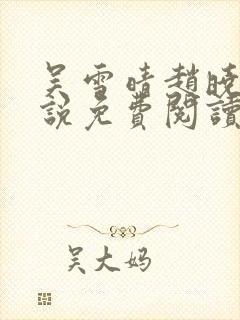 吴雪晴趙晓
說免費閱讀
吴大妈